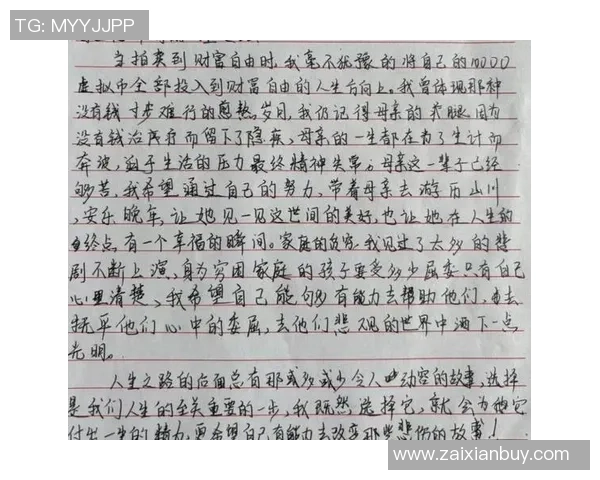 TG: MYYJJPP
当拍卖到财富自由时,我毫不犹豫的将自己的10000
虚拟币全部投入到财富自由的人生方向上。我曾体现那种
没有钱寸步难行的煎熬岁月,我仍记得母亲的双腿因为
没有钱治疗而留下了隐疾、母亲的一生都在为了生计而
奔波,迫于生活的压力最终精神失常。母亲这一辈子已经
够苦,我希望通过自己的努力,带着母亲去游历山川
,安乐晚年,让她见一见这世间的美好,也让她在人生的
终点有一个幸福的瞬间。家庭的贫穷,我见过了太多的悲
剧不断上演,身为穷困家庭的孩子要受多少屈委只有自己
心里清楚、我希望自己能够有能力去帮助他们,去
抚平他们心中的委屈,去他们悲观的世界中洒下一点
光明。
人生之路的后面总有那或多或少令人动容的故事,选择
是我们人生的至关重要的一步,我既然选择它,就会为他穷
付出一生的精力,更希望自己有能力去改变那些悲伤的故事!
www.zaixianbuy.com